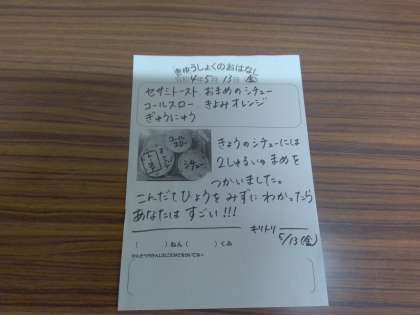 きゅうしょくのおはなし
4年5月13日(金)
セサミトースト おまめのシチュー
コールスロー きよみオレンジ
ぎゅうにゅう
コールスロー
シチュー
きょうのシチューには
2しゅるいの まめを
つかいました。
こんだてひょうを みずに わかったら
あなたは すごい!!!
キリトリ
5/13(金)
( )ねん( )くみ